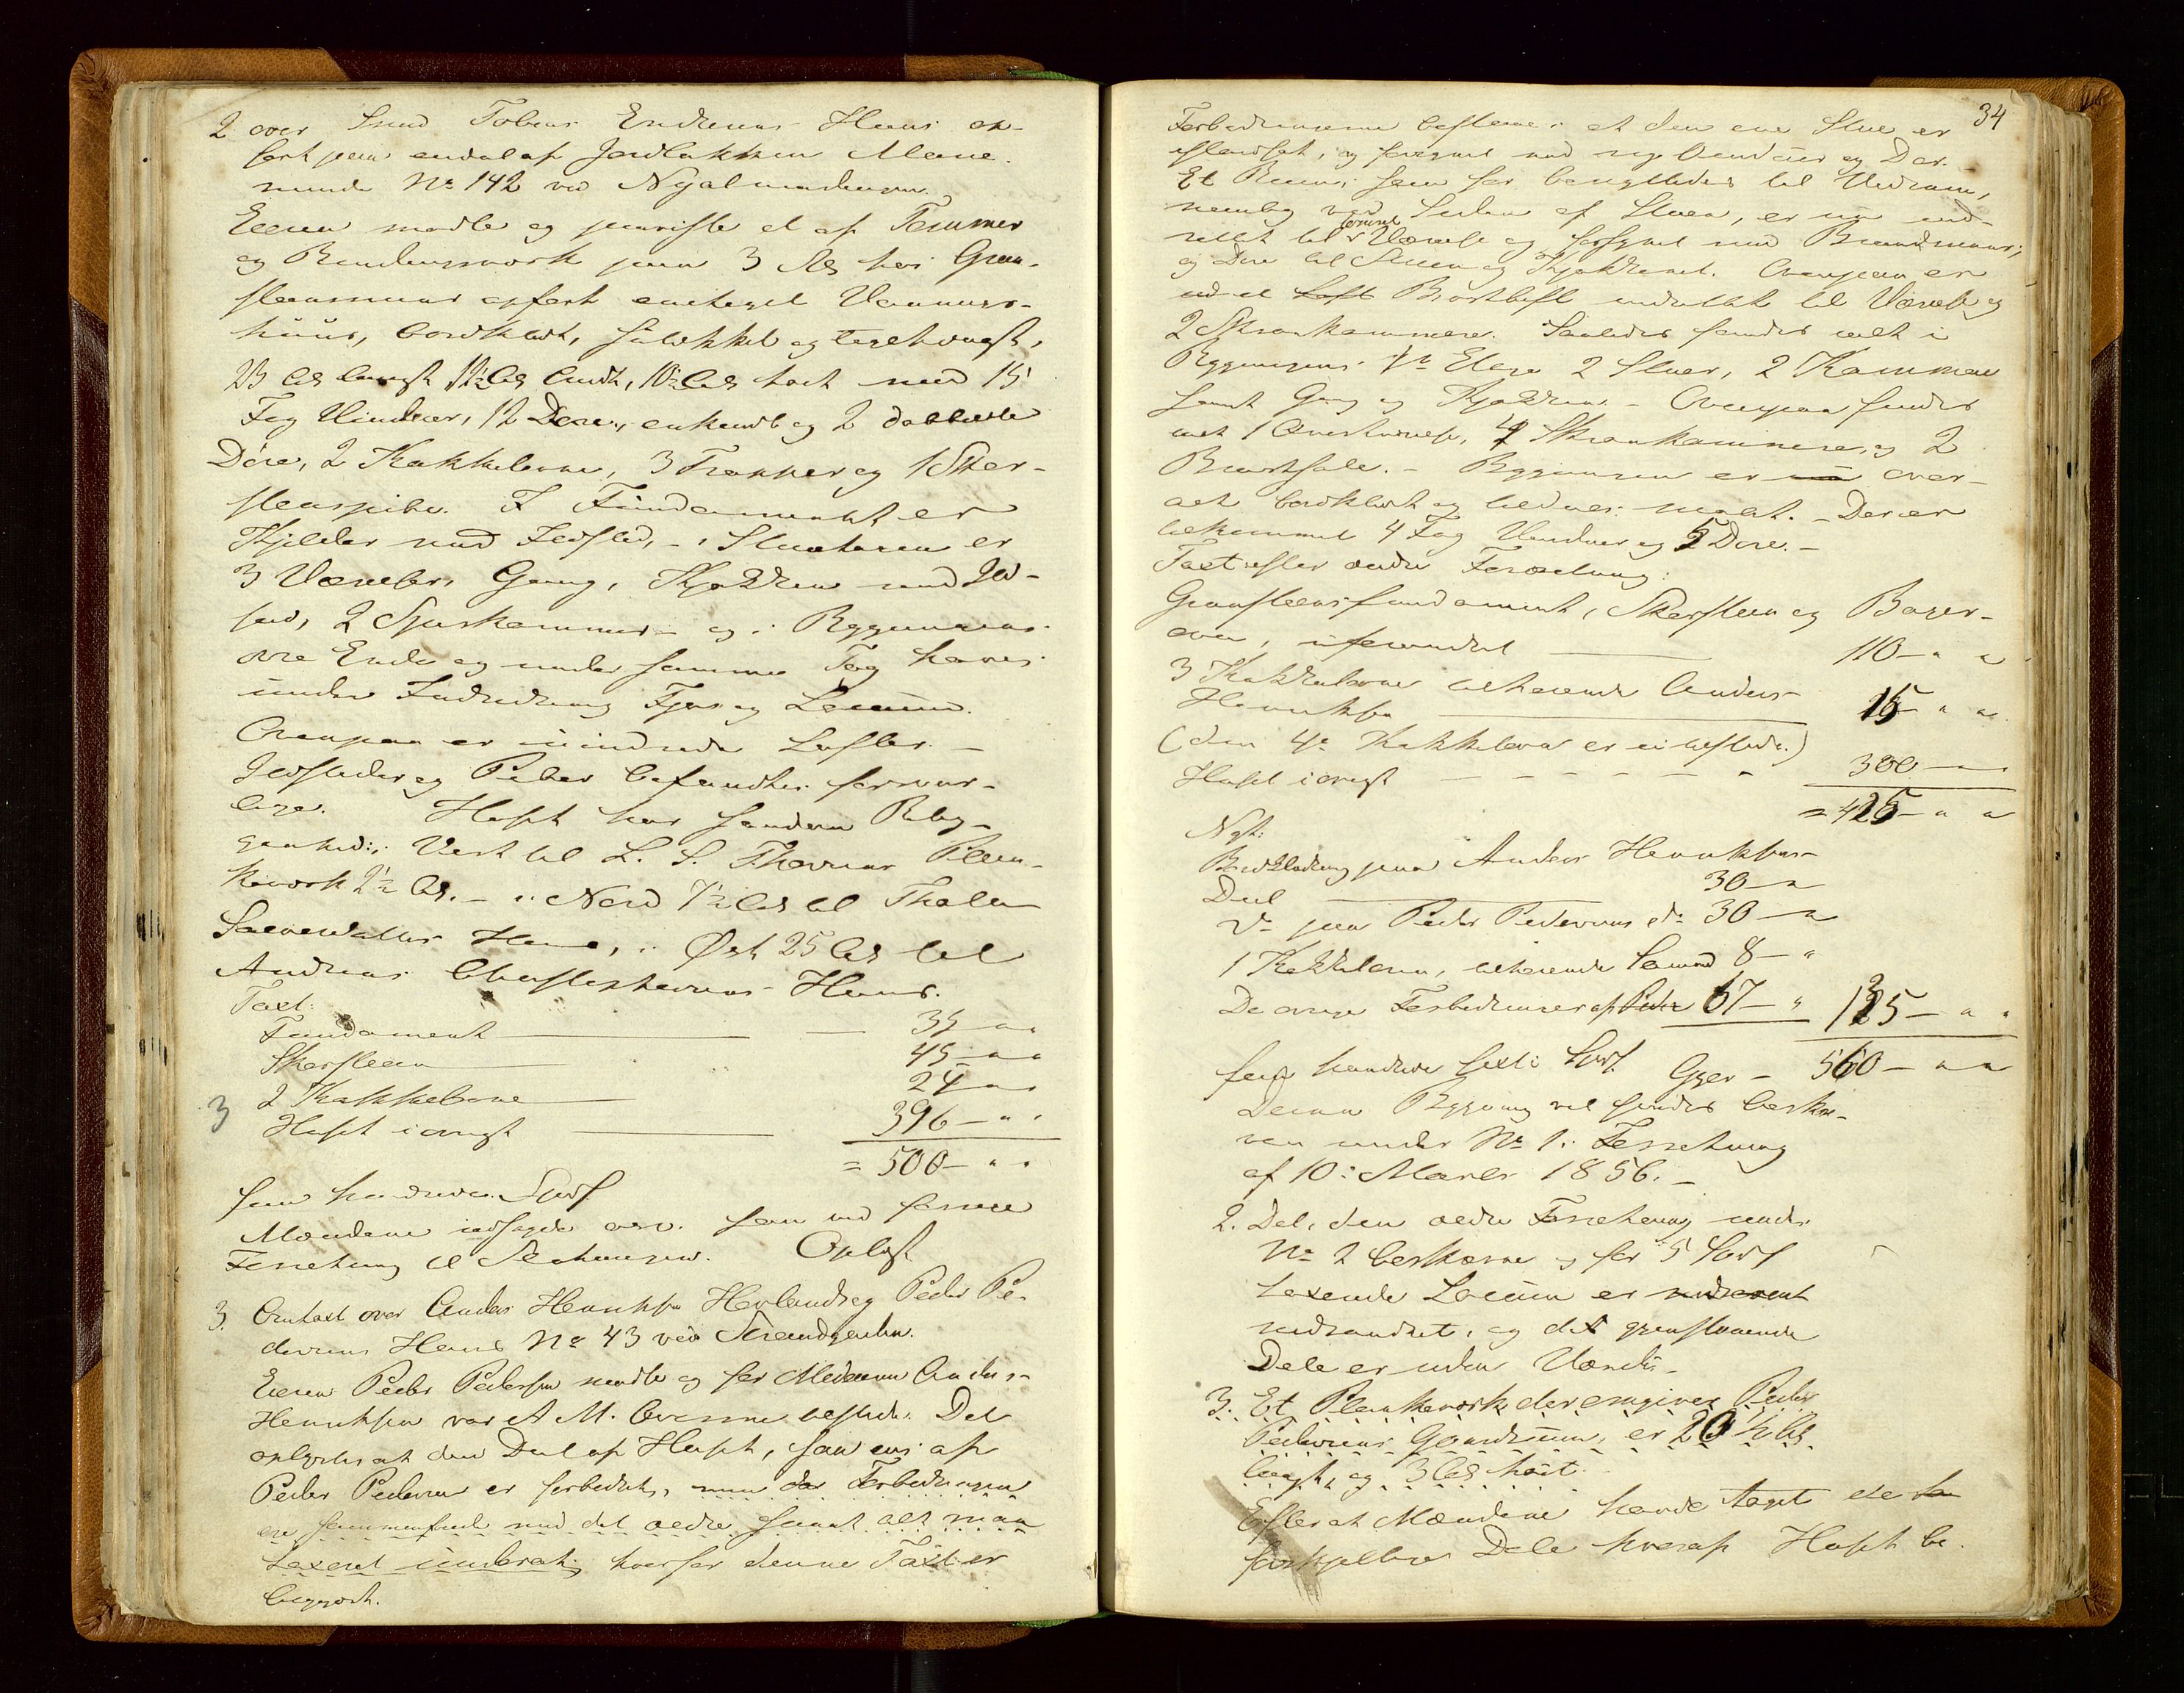 2 over Smed Tobias Endresens Huus op-
ført paa endel af Jordlakken Mane.
nunde No 142 ved Nyalmindingen.
Eieren mødte og paaviste et af Tømmer
og Bindingsværk paa 3 Al. høi Graa-
steensmuur opført eenetages Vaanings-
huus, bordklædt, og teglhængt,
23 Al. langt 12½ Al. bredt, 10½ Al. høit med 15
Fag Vinduer, 12 Døre, enkelte og 2 dobbelte
Døre, 2 Kakkelovne, 3 Trapper og 1 Skor-
steenspibe. I Fundamentet er
Kjelder med Ildsted, - i Stueetagen er
3 Værelser, Gang, Kjøkken med Ild-
sted, 2 Spiskammer - og i Bygningens
øvre Ende og under samme Tag haves
under Indredning Fjøs og Locum.
Ovenpaa er uindredede Lofter. -
Ildsteder og Piber befandtes forsvar-
lige. Huset har saadan Belig-
genhed: i Vest til L. S. Thorsens Plan-
keværk 2½ Al. - i Nord 1½ Al. til Tholen
Huus, i Øst 25 Al. til
Andreas Christophersens Huus.
Taxt:
Fundament 35 " "
Skorsteen 45 " "
2 Kakkelovne 24 " "
3 Huset iøvrigt 396 " "
= 500 - " "
fem hundrede Spd
Mændene indsagde osv. som ved første
Forretning til Slutningen. Oplæst
3. Omtaxt over Anders Henriksen Hovland og Peder Pe-
dersens Huus No 43 ved Strandgaden.
Eieren Peder Pedersen mødte og for Medeieren Anders
Henriksen var A M. tilstede. Det
oplystes at den Deel af Huset, som eies af
Peder Pedersen er forbedret, men da Forbedringen
ere sammenført med det ældre samt alt man
taxeret underet, hvorfor denne Taxt er
begjært.
34
Forbedringerne bestaae i at den ene Stue er
istandsat, og forsynet med nye Vinduer og Dør.
Et Ruum, som før benyttedes til Vedrum,
nemlig ved Siden af Stuen, er nu ind-
rettet til Værelse og forsynet med Brandmuur,
og Døre til Stuen og Kjøkkenet. Ovenpaa er
ud et Loft Brostloft indrettet til Værelse og
2 Skraakammere. Saaledes findes nu i
Bygningens 1te Etage 2 Stuer, 2 Kammere
samt Gang og Kjøkken. - Ovenpaa findes
nu 1 Qvistværelse, 4 Skraakammere, og 2
Brostsale. - Bygningen er nu over-
alt bordklædt og udvendig malet. - Der er
tilkommet 4 Fag Vinduer og 5 Døre. -
Taxt efter ældre Forretning:
Graasteensfundament, Skorsteen og Bager-
ovn, uforandret 110 - " "
3 Kakkelovne tilhørende Anders
Henriksen 15 - " "
(den 4de Kakkelovn er ei tilstede.)
Huset iøvrigt - - - - - - 300 - "
= 425 - " "
Nyt:
Bordklædning paa Anders Henriksens
Deel 30 - "
Do paa Peder Pedersens do 30 - "
1 Kakkelovn, tilhørende 8 - "
De øvrige Forbedringer af Peder 67 - " 135 - " "
fem hundrede sexti Spd Gjør - 560 - " "
Denne Bygning vil findes beskre-
ven under No 1 i Forretning
af 10: Marts 1856. -
2. Det i den ældre Forretning under
No 2 beskrevne og for 5 Spd
taxerede Locum er
nedrandset, og det gjenstaaende
Dele er uden Værdi. -
3. Et Plankeværk der omgiver Peder
Pedersens Gaardsrum, er 20½ Al.
langt, og 3 Al. høit.
Efter at Mændene havde taget de
forskjellige Dele hvoraf Huset be-